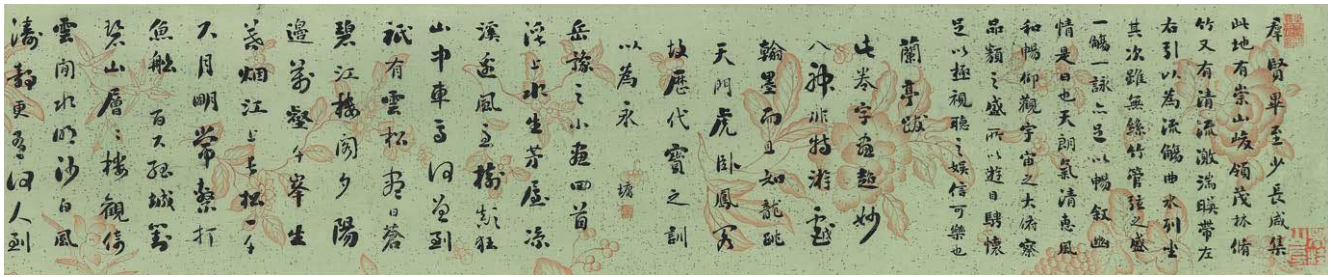 群賢畢至少長咸集
此地有崇山峻領茂林脩
竹又有清流激湍暎帶左
右引以為流觴曲水列坐
其次雖無絲竹管弦之盛
一觴一詠亦足以暢敘幽
情是日也天朗氣清惠風
和暢仰觀宇宙之大俯察
品類之盛所以遊目騁懷
足以極視聽之娛信可樂也
蘭亭跋
此卷字畫超妙
入神非特游戲
翰墨而且如龍跳
天門虎臥鳳閣
故歷代寶之訓
以為永
岳豫之小畫四首
溪上水生茅屋涼
溪邊風至樹顛狂
山中車馬何曾到
祇有雲松盡日蒼
碧江樓閣夕陽
邊萬壑千峯生
暮烟江上長松一千
尺月明常繫打
魚船 百尺孤城對
碧山層々樓觀倚
雲間水明沙白風
濤靜更有何人到